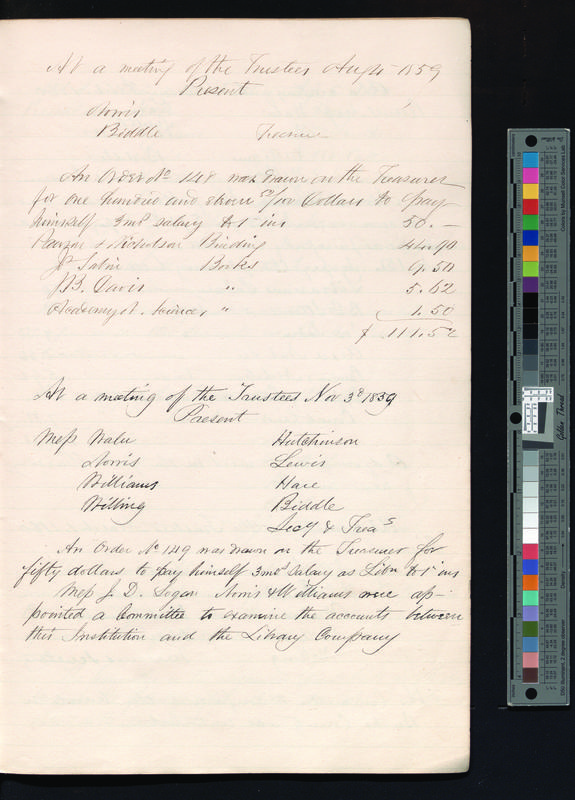 At a meeting of the Trustees Aug 4 1859
Present
Norris
Biddle Treasurer
An Order No 148 was drawn on the Treasurer
for one hundred and eleven 52/100 Dollars to pay
himself 3mos salary to 1st ins 50.—
Pawson & Nicholson Binding 44.90
Js Sabin Books 9.50
J.B. Davis " 5.62
Academy N. Sciences " 1.50
$ 111.52
At a meeting of the Trustees Nov 3d 1859
Present
Mess Waln Hutchinson
Norris Lewis
Williams Hare
Willing Biddle
Secy & Treas
An Order No 149 was drawn on the Treasurer for
fifty dollars to pay himself 3mos salary as Libn to 1st ins
Mess J. D. Logan Norris & Williams were ap-
pointed a Committee to examine the accounts between
this Institution and the Library Company